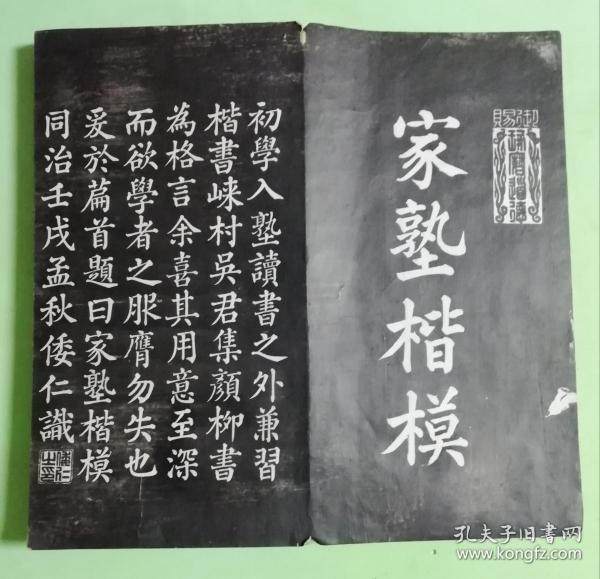 御賜
家塾楷模
初學入塾讀書之外兼習
楷書崍村吳君集顏柳書
為格言余喜其用意至深
而欲學者之服膺勿失也
爰於篇首題曰家塾楷模
同治壬戌孟秋倭仁識
倭仁之印
孔夫子旧书网
www.kongfz.com